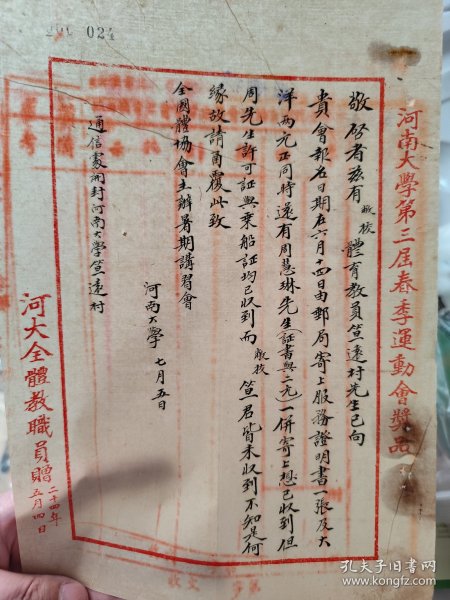 210 024
河南大學第三屆春季運動會獎品
敬啓者茲有敝校體育教員笪遠村先生已向
貴會報名日期在六月十四日由郵局寄上服務證明書一張及大
洋兩元正同時還有周慧琳先生(証書與二元)一併寄上想已收到但
周先生許可証與乘船証均已收到而敝校笪君皆未收到不知是何
緣故請酉覆此致
全國體協會主辦暑期講習會
河南大學 七月五日
通信處開封河南大學笪遠村
河大全體教職員贈
二十四年
五月四日
孔夫子旧书网